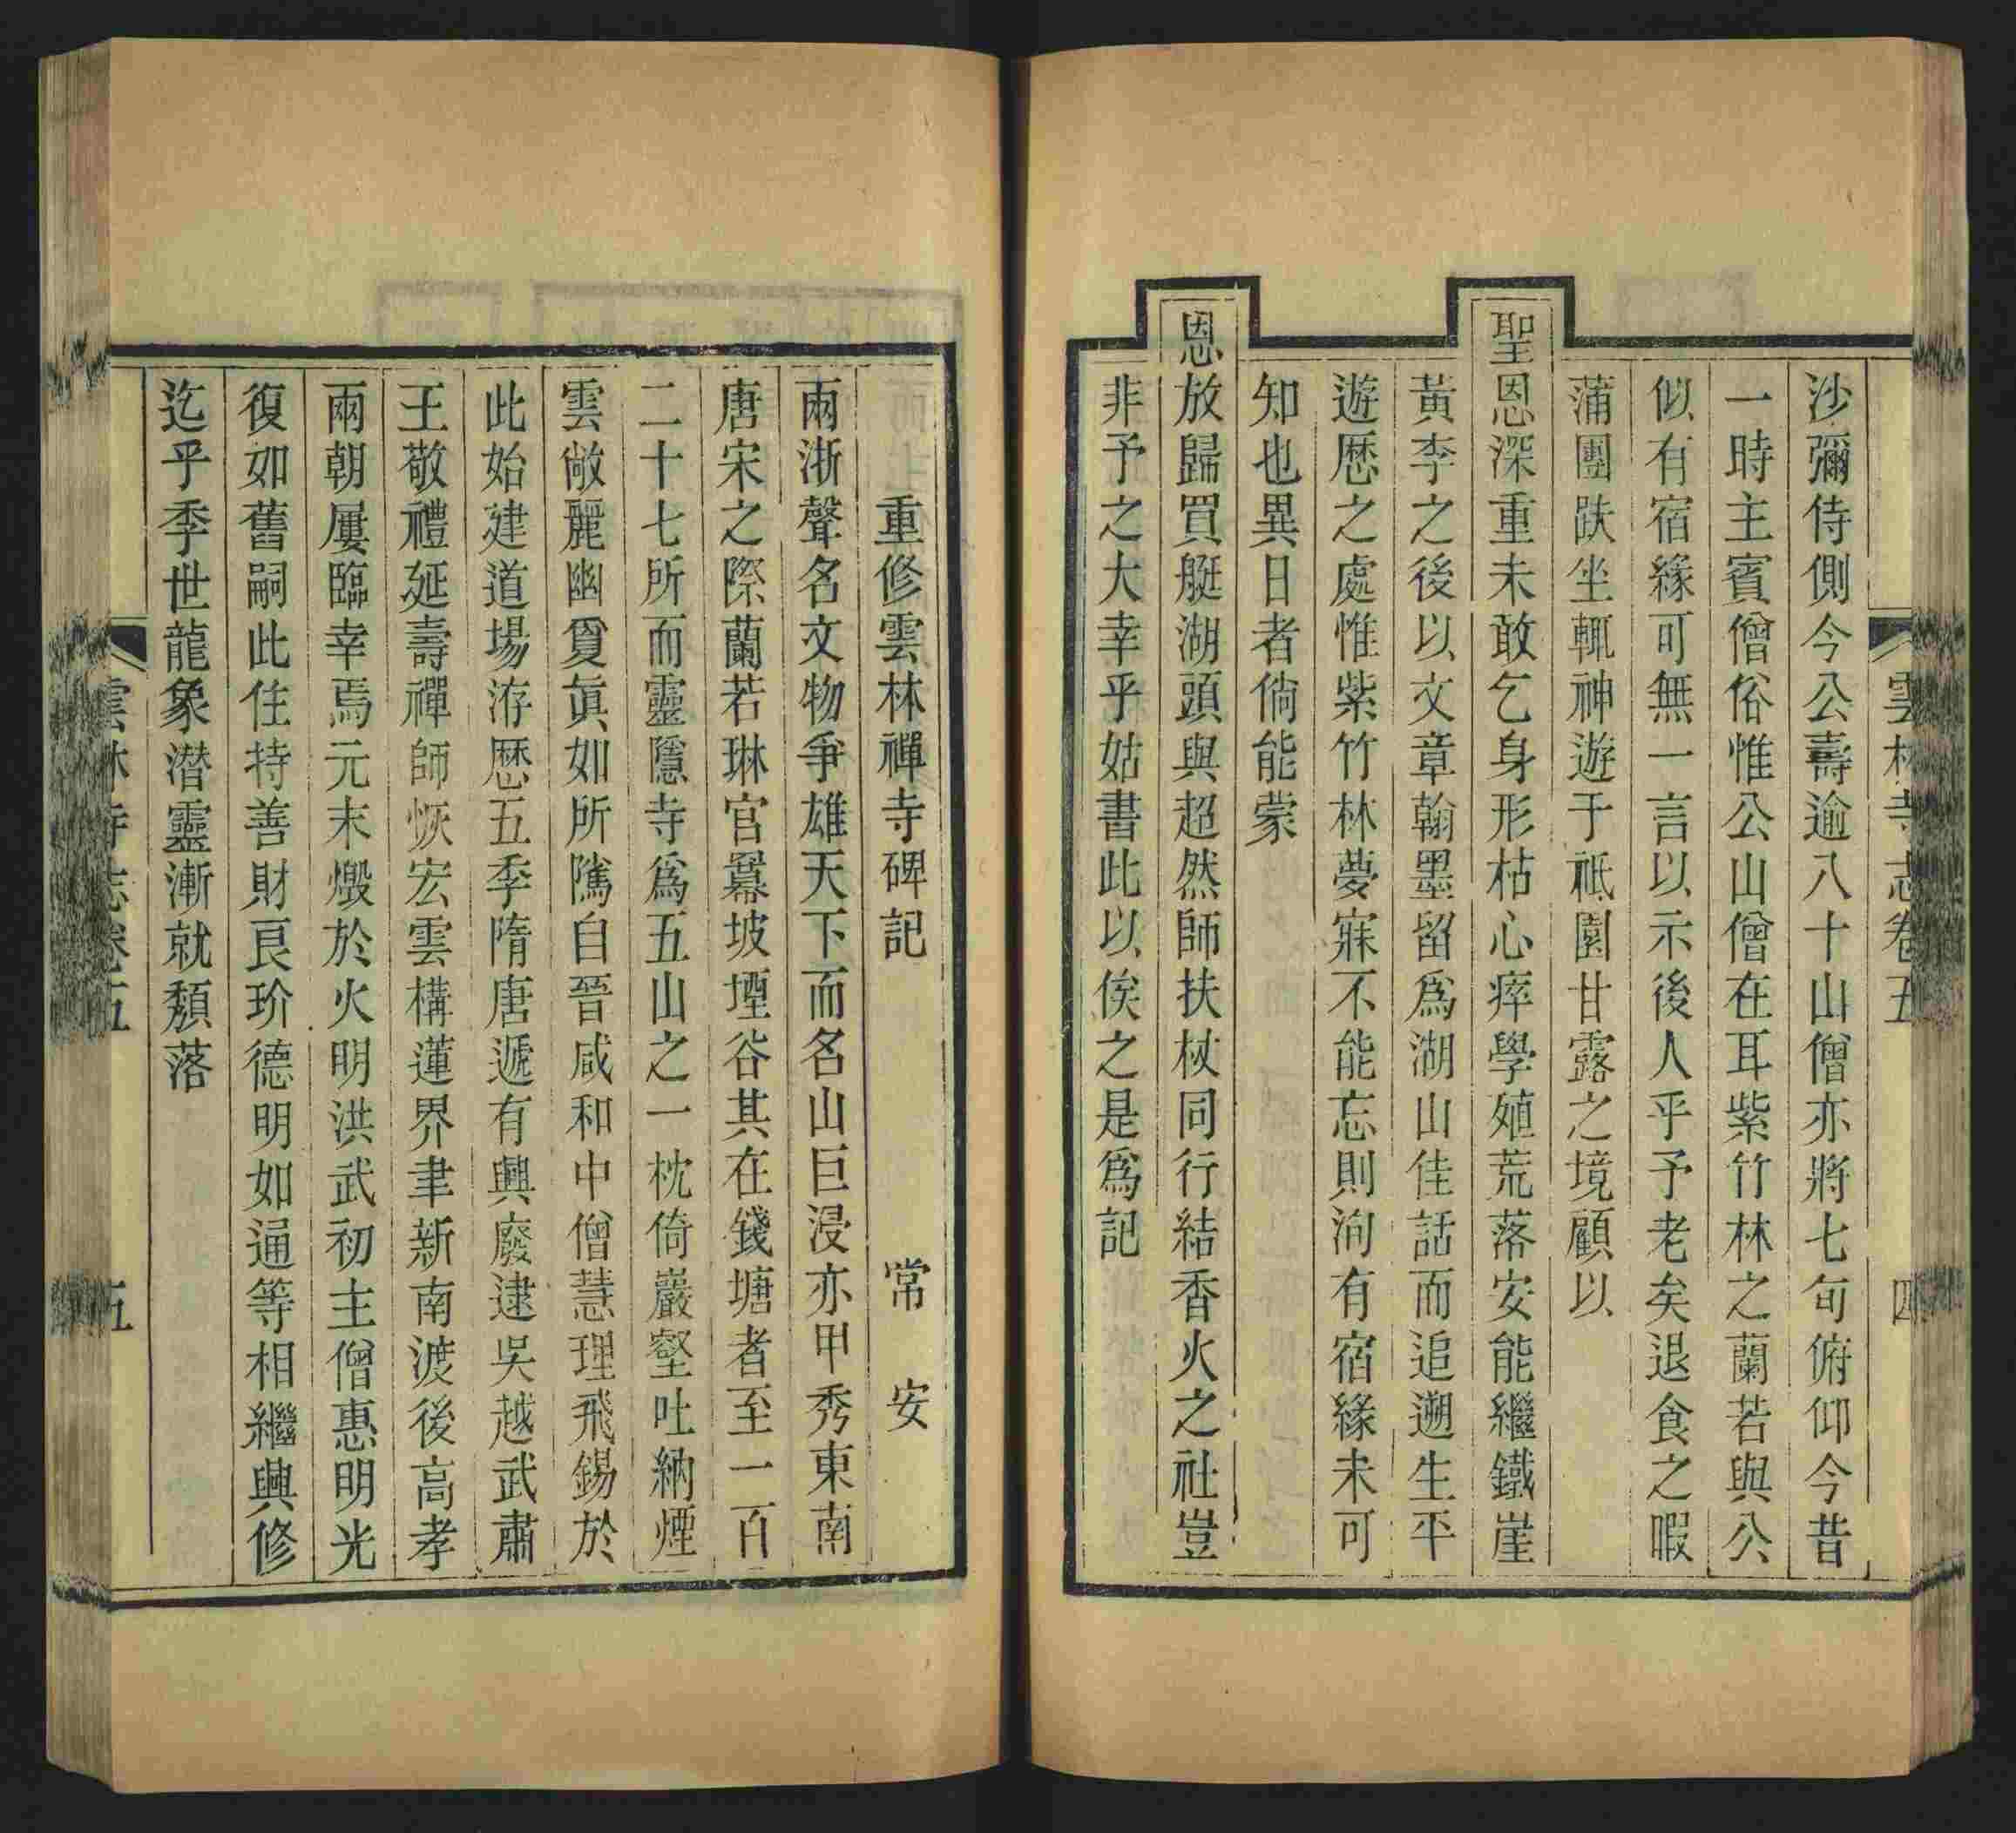 雲林寺志卷五
四
沙彌侍側今公壽逾八十山僧亦將七旬俯仰今昔
一時主賓僧俗惟公山僧在耳紫竹林之蘭若與公
似有宿緣可無一言以示後人乎予老矣退食之暇
蒲團趺坐輒神遊于祗園甘露之境顧以
聖恩深重未敢乞身形枯心瘁學殖荒落安能繼鐵崖
黃李之後以文章翰墨留爲湖山佳話而追遡生平
遊歷之處惟紫竹林夢寐不能忘則洵有宿緣未可
知也異日者倘能蒙
恩放歸買艇湖頭與超然師扶杖同行結香火之社豈
非予之大幸乎姑書此以俟之是爲記
重修雲林禪寺碑記
常安
兩浙聲名文物爭雄天下而名山巨浸亦甲秀東南
唐宋之際蘭若琳宮羃坡堙谷其在錢塘者至一百
二十七所而靈隱寺爲五山之一枕倚巖壑吐納煙
雲敞麗幽敻眞如所隲自晉咸和中僧慧理飛錫於
此始建道場洊歷五季隋唐遞有興廢逮吳越武肅
王敬禮延壽禪師恢宏雲構蓮界聿新南渡後高孝
兩朝屢臨幸焉元末燬於火明洪武初主僧惠明光
復如舊嗣此住持善財良玠德明如通等相繼興修
迄乎季世龍象潛靈漸就頹落
雲林寺志卷五
五